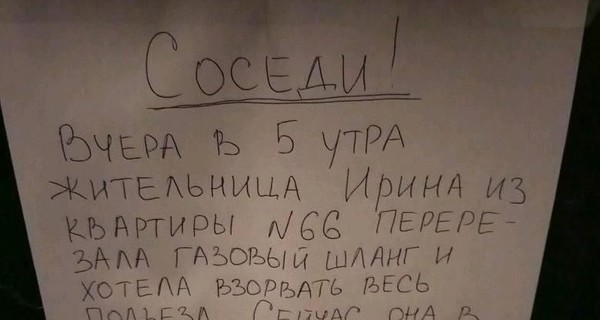 СОСЕДИ!
ВЧЕРА В 5 УТРА
ЖИТЕЛЬНИЦА ИРИНА ИЗ
КВАРТИРЫ N66 ПЕРЕРЕ-
ЗАЛА ГАЗОВЫЙ ШЛАНГ И
ХОТЕЛА ВЗОРВАТЬ ВЕСЬ
ПОДЬЕЗД. СЕЙЧАС ОНА В